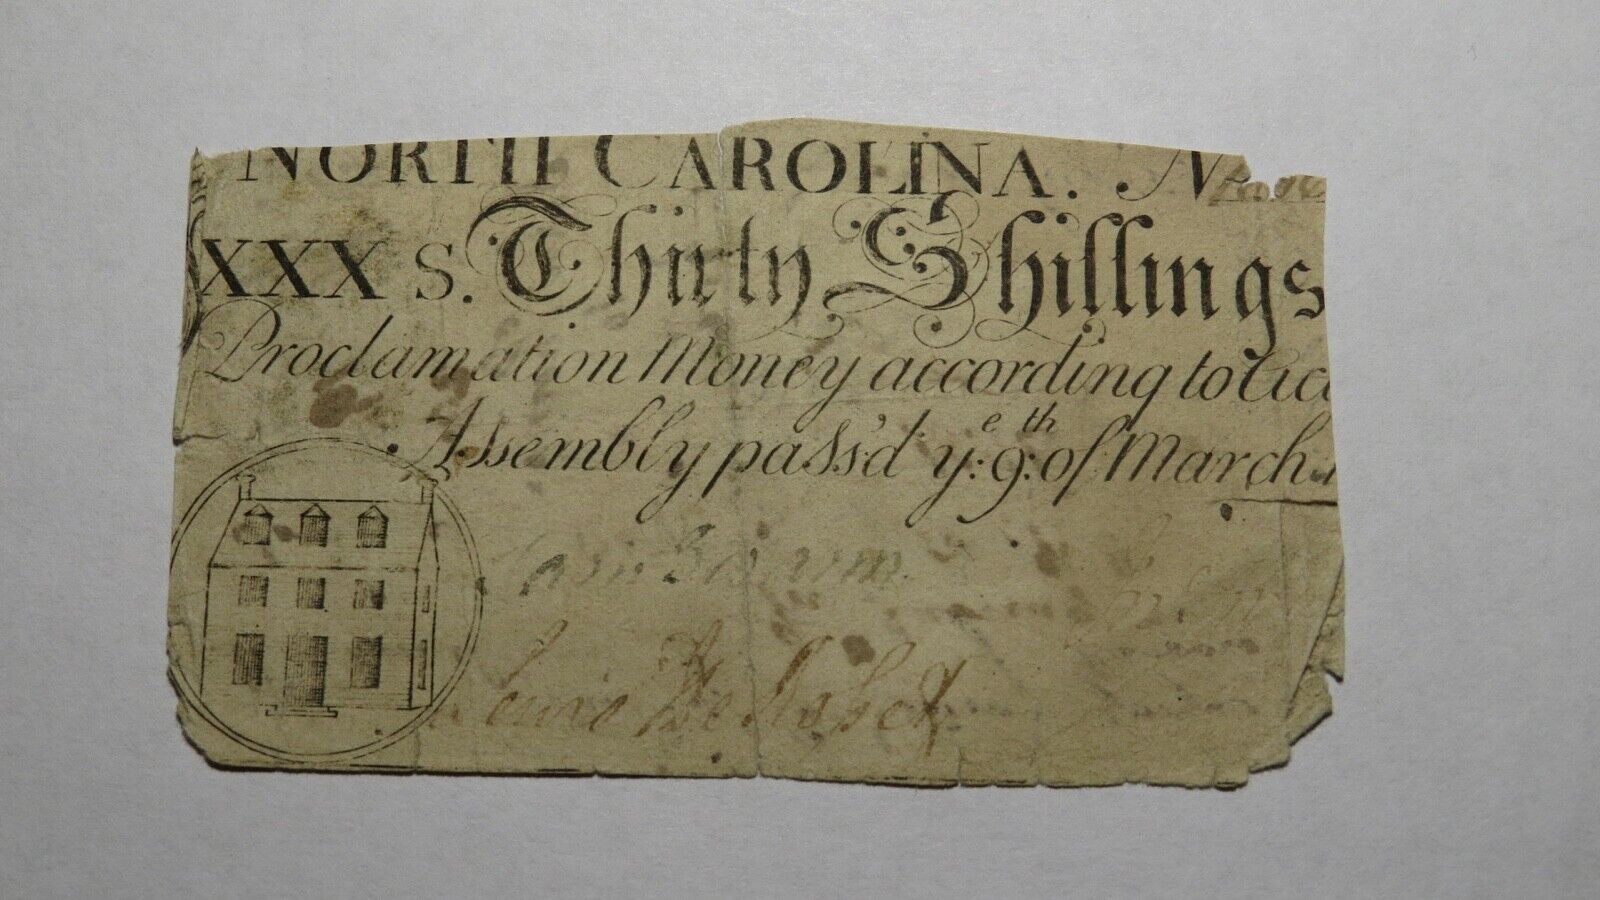 NORTH CAROLINA. N
XXX S. Thirty Shillings
Proclamation Money according to Act
Assembly pass'd yᵉ: 9ᵗʰ: of March
Lewis De Rosset